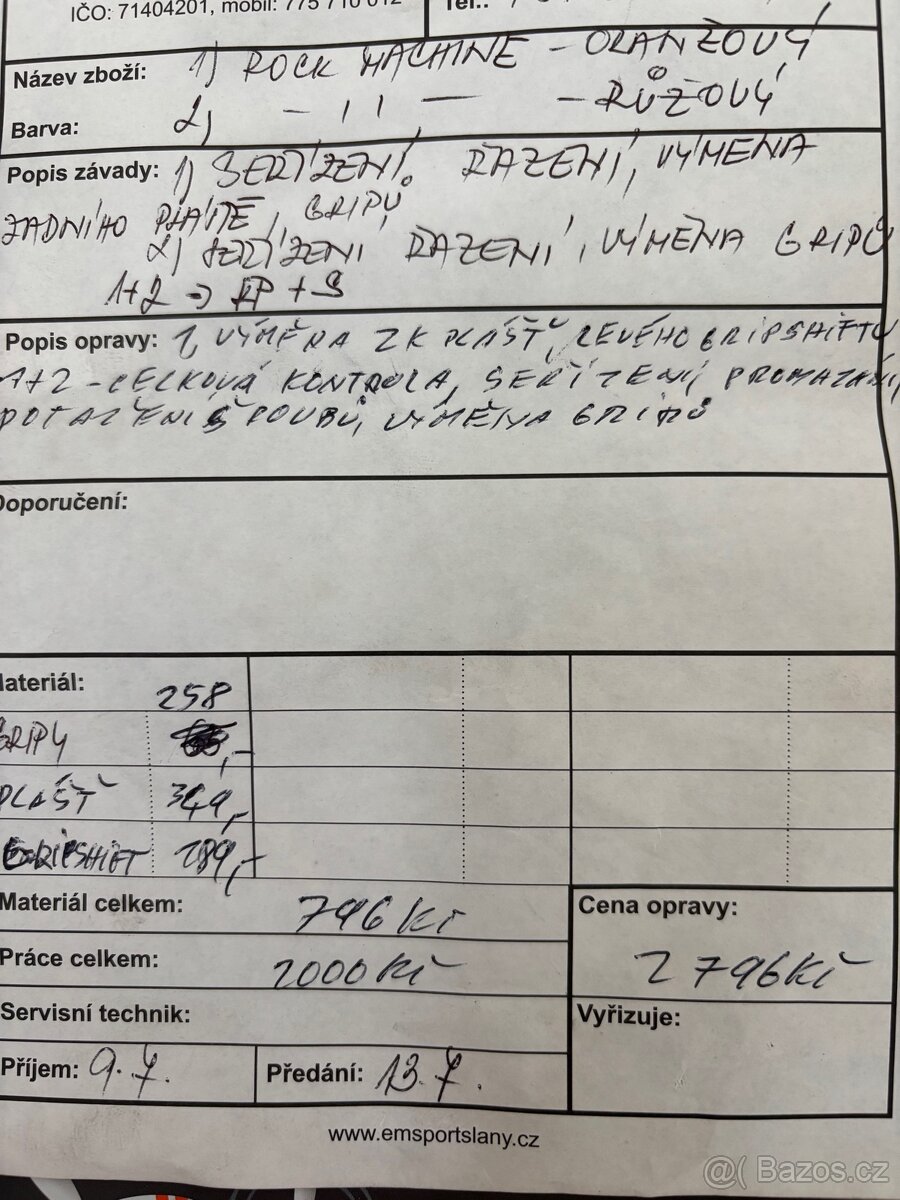 IČO: 71404201, mobil: 775 710 012
Tel.:
Název zboží: 1) ROCK MACHINE - ORANŽOVÝ
Barva: 2) - 11 - - RŮŽOVÝ
Popis závady: 1) SEŘÍZENÍ ŘAZENÍ, VÝMĚNA
ZADNÍHO PLÁŠTĚ, GRIPŮ
2) SEŘÍZENÍ ŘAZENÍ, VÝMĚNA GRIPŮ
1+2 => KP + S
Popis opravy: 1, VÝMĚNA ZK PLÁŠŤ, LEVÉHO GRIPSHIFTU
1+2 - CELKOVÁ KONTROLA, SEŘÍZENÍ, PROMAZÁNÍ,
DOTAŽENÍ ŠROUBŮ, VÝMĚNA GRIPŮ
Doporučení:
Materiál: 258
GRIPY ,-
PLÁŠŤ 349,-
GRIPSHIFT 189,-
Materiál celkem: 796 Kč
Cena opravy:
Práce celkem: 2000 Kč
2 796 Kč
Servisní technik:
Vyřizuje:
Příjem: 9.7.
Předání: 13.7.
www.emsportslany.cz
@( Bazos.cz